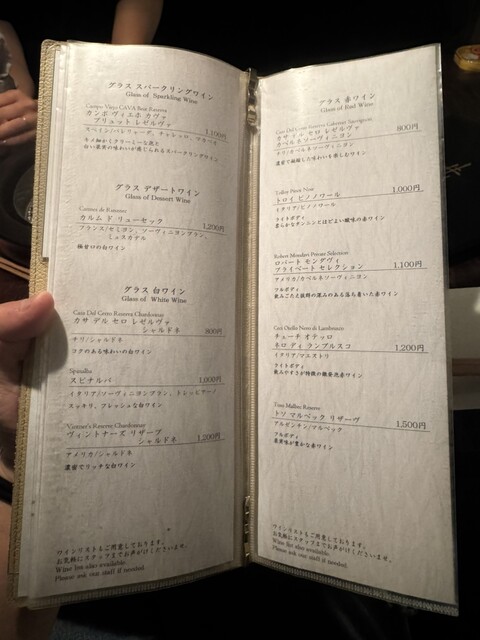 グラス スパークリングワイン
Glass of Sparkling Wine
Campo Viejo CAVA Brut Reserva
カンポ ヴィエホ カヴァ
ブリュット レゼルヴァ 1,100円
キノ細かくクリーミーな泡と
白い果実の味わいが感じられるスパークリングワイン
グラス デザートワイン
Glass of Dessert Wine
Carmes de Rieussec
カルム ド リューセック 1,200円
フランス/セミヨン、ソーヴィニヨンブラン、
ミュスカデル
極甘口の白ワイン
グラス 白ワイン
Glass of White Wine
Casa Del Cerro Reserva Chardonnay
カサ デル セロ レゼルヴァ
シャルドネ 800円
チリ/シャルドネ
コクのある味わいの白ワイン
Spinalba
スピナルバ 1,000円
イタリア/ソーヴィニヨンブラン、
スッキリ、フレッシュな白ワイン
Vintner's Reserve Chardonnay
ヴィントナーズ リザーブ
シャルドネ 1,200円
アメリカ/シャルドネ
濃密でリッチな白ワイン
ワインリストもご用意しております。
お気軽にスタッフまでお声がけくださいませ。
Wine list also available.
Please ask our staff if needed.
グラス 赤ワイン
Glass of Red Wine
Casa Del Cerro Reserva Cabernet Sauvignon
カサ デル セロ レゼルヴァ
カベルネ ソーヴィニヨン 800円
チリ/カベルネソーヴィニヨン
濃密で凝縮した味わいを楽しむワイン
Pinot Noir
トロイ ピノ ノワール 1,000円
イタリア/ピノノワール
ライトボディ
柔らかなタンニンとほどよい酸味の赤ワイン
Robert Mondavi Private Selection
ロバート モンダヴィ
プライベート セレクション 1,100円
アメリカ/カベルネソーヴィニヨン
フルボディ
飲みごたえ抜群の深みのある落ち着いた赤ワイン
Nero di Lambrusco
キューチ オテッロ
ネロ ディ ランブルスコ 1,200円
イタリア/マエストリ
ライトボディ
飲みやすさが特徴の微発泡赤ワイン
Malbec Reserve
トソ マルベック リザーヴ 1,500円
アルゼンチン/マルベック
フルボディ
果実味が豊かな赤ワイン
ワインリストもご用意しております。
お気軽にスタッフまでお声がけくださいませ。
Wine list also available.
Please ask our staff if needed.